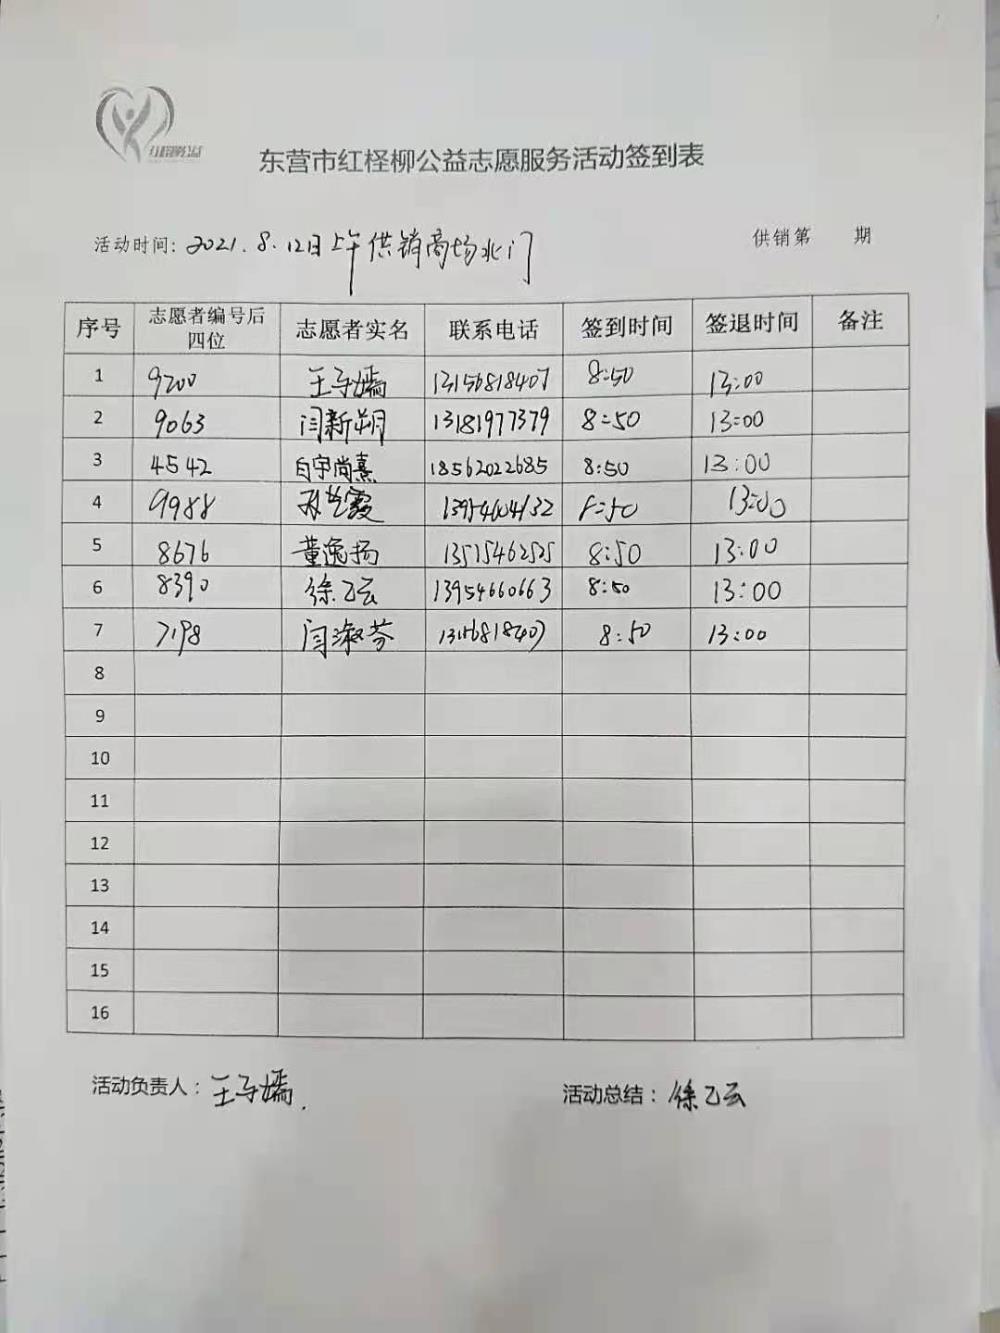 红柽柳公益
东营市红柽柳公益志愿服务活动签到表
活动时间: 2021.8.12日上午供销商场北门 供销第 期
序号 志愿者编号后四位 志愿者实名 联系电话 签到时间 签退时间 备注
1 9200 王子嫣 13156818407 8:50 13:00
2 9063 闫新朔 13181977379 8:50 13:00
3 4542 白宇尚熹 18562022685 8:50 13:00
4 9988 孙兰霞 13954604132 8:50 13:00
5 8676 董逸扬 13515462525 8:50 13:00
6 8390 徐乙云 13954660663 8:50 13:00
7 7198 闫淑芬 13156818407 8:50 13:00
8
9
10
11
12
13
14
15
16
活动负责人: 王子嫣. 活动总结: 徐乙云